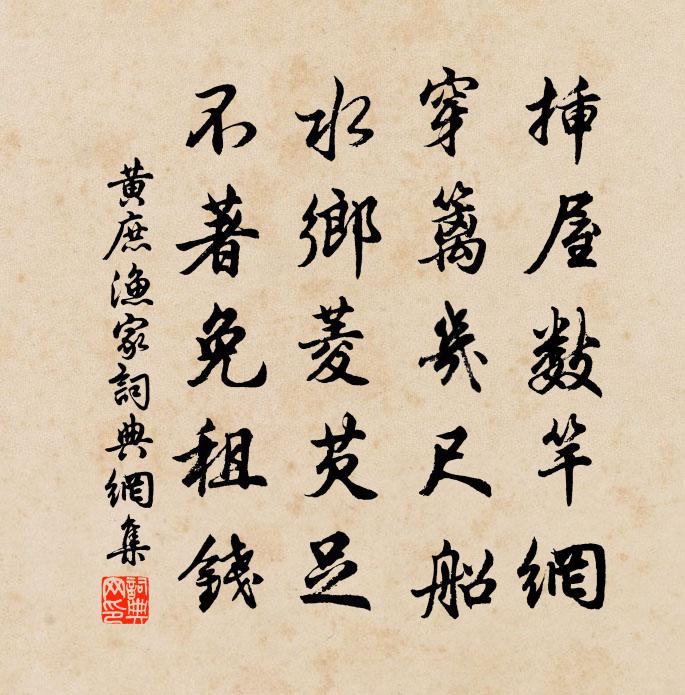 挿屋數竿網
穿籬幾尺船
水鄉菱芡足
不著免租錢
黃庶漁家詞典網集
詞典網印